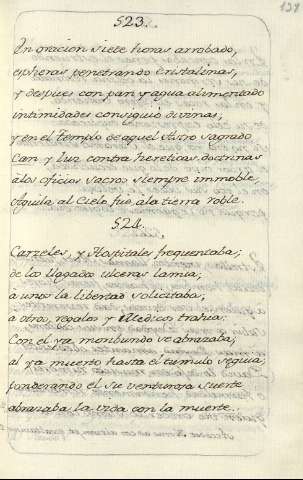 523.
En oracion siete horas arrobado,
espheras penetrando Cristalinas,
y despues con pan y agua alimentado
intimidades consiguiò divinas,
y en el templo de aquel Astro sagrado
Can y Luz contra hereticas doctrinas
à los oficios sacros siempre immoble,
Aguila al Cielo fuè, a la tierra roble.
524.
Carzeles, y Hospitales frequentaba;
de los llagados ulceras lamia;
à unos la libertad solicitaba,
à otros, regalos y Medico trahia.
Con el ya moribundo se abrazaba;
al ya muerto hasta el tumulo seguia,
ponderando el su venturosa suerte
abrazaba la vida con la muerte.